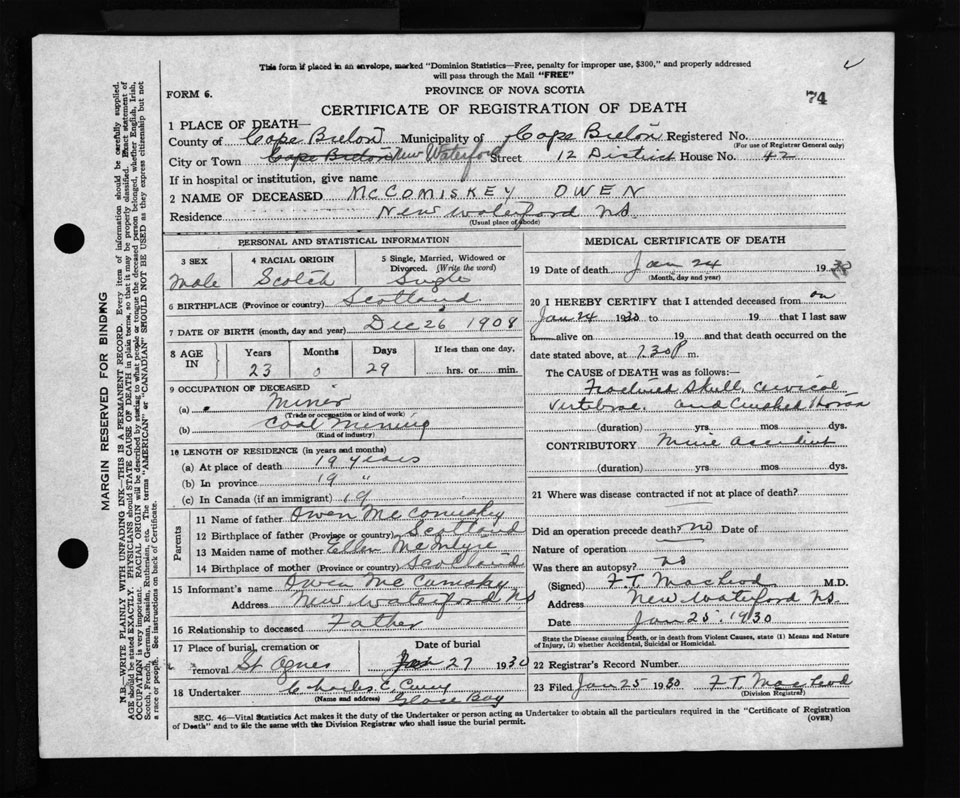 This form if placed in an envelope, marked "Dominion Statistics—Free, penalty for improper use, $300," and properly addressed
will pass through the Mail "FREE"
PROVINCE OF NOVA SCOTIA
FORM 6.
74
CERTIFICATE OF REGISTRATION OF DEATH
1 PLACE OF DEATH—
County of Cape Breton Municipality of Cape Breton Registered No.
(For use of Registrar General only)
City or Town Cape Breton New Waterford Street 12 District House No. 42
If in hospital or institution, give name
2 NAME OF DECEASED MCCOMISKEY OWEN
Residence New Waterford NS.
(Usual place of abode)
PERSONAL AND STATISTICAL INFORMATION
3 SEX 4 RACIAL ORIGIN 5 Single, Married, Widowed or Divorced. (Write the word)
Male Scotch Single
6 BIRTHPLACE (Province or country) Scotland
7 DATE OF BIRTH (month, day and year) Dec 26 1908
8 AGE IN Years Months Days If less than one day,
23 0 29 hrs. or min.
9 OCCUPATION OF DECEASED
(a) Miner
(Trade or occupation or kind of work)
(b) Coal Mining
(Kind of industry)
10 LENGTH OF RESIDENCE (in years and months)
(a) At place of death 19 years
(b) In province 19 "
(c) In Canada (if an immigrant) 19
Parents
11 Name of father Owen McComiskey
12 Birthplace of father (Province or country) Scotland
13 Maiden name of mother Ellen McIntyre
14 Birthplace of mother (Province or country) Scotland
15 Informant's name Owen McComisky
Address New Waterford NS
16 Relationship to deceased Father
17 Place of burial, cremation or removal St Agnes
Date of burial Jan 27 1930
18 Undertaker Charles C Curry
(Name and address) Glace Bay
MEDICAL CERTIFICATE OF DEATH
19 Date of death Jan 24 19
(Month, day and year)
20 I HEREBY CERTIFY that I attended deceased from on
Jan 24 1930 to 19 that I last saw
h alive on 19 and that death occurred on the
date stated above, at 7.30P m.
The CAUSE of DEATH was as follows:—
Fractured Skull, Cervical
Vertebrae. and Crushed Thorax
(duration) yrs. mos. dys.
CONTRIBUTORY Mine accident
(duration) yrs. mos. dys.
21 Where was disease contracted if not at place of death?
Did an operation precede death? no Date of
Nature of operation
Was there an autopsy? no
(Signed) F.T. MacLeod M.D.
Address New Waterford NS.
Date Jan 25 1930
State the Disease causing Death, or in death from Violent Causes, state (1) Means and Nature of Injury, (2) whether Accidental, Suicidal or Homicidal.
22 Registrar's Record Number
23 Filed Jan 25 1930 F.T. MacLeod
(Division Registrar)
SEC. 46—Vital Statistics Act makes it the duty of the Undertaker or person acting as Undertaker to obtain all the particulars required in the "Certificate of Registration
of Death" and to file the same with the Division Registrar who shall issue the burial permit. (OVER)
MARGIN RESERVED FOR BINDING
N.B.—WRITE PLAINLY WITH UNFADING INK—THIS IS A PERMANENT RECORD. Every item of information should be carefully supplied.
AGE should be stated EXACTLY. PHYSICIANS should STATE CAUSE OF DEATH in plain terms, so that it may be properly classified. Exact statement of
OCCUPATION is very important. RACIAL ORIGIN will be described by stating to what people or tongue the deceased person belonged, whether English, Irish,
Scotch, French, German, Russian, Ruthenian, etc. The terms "AMERICAN" or "CANADIAN" SHOULD NOT BE USED as they express citizenship but not
a race or people. See instructions on back of Certificate.